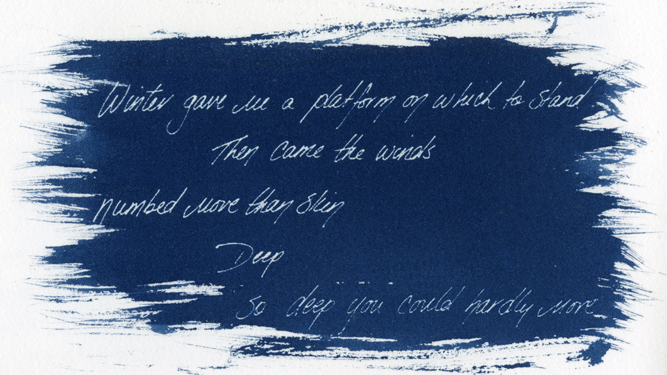 Winter gave me a platform on which to stand
Then came the winds
numbed more than skin
Deep
so deep you could hardly move